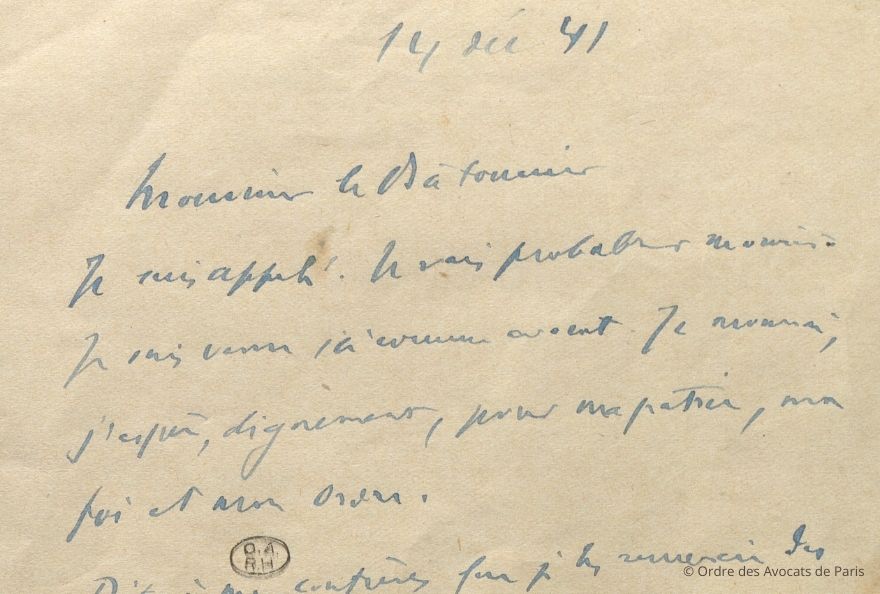 14 déc 41
Monsieur le Bâtonnier
Je suis appelé. Je vais probablement mourir.
Je suis venu ici comme avocat. Je mourrai,
j'espère, dignement, pour ma patrie, ma
foi et mon Ordre.
O.A.
R.H
Dites à mes confrères que je les remercie des
© Ordre des Avocats de Paris